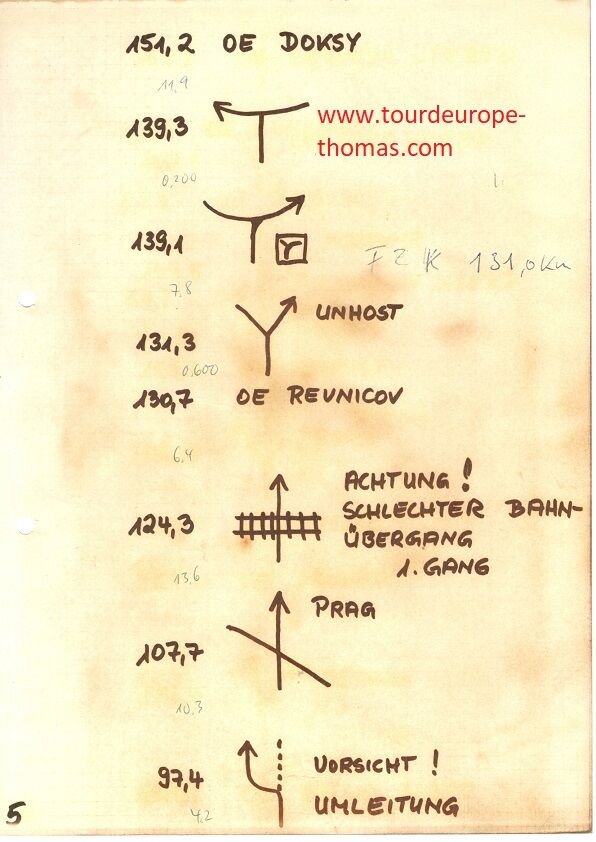 151,2 OE DOKSY
11,9
139,3
www.tourdeurope-
thomas.com
0,200
139,1
FZK 131,0 Km
7,8
131,3 UNHOST
0,600
130,7 OE REVNICOV
6,4
ACHTUNG!
124,3 SCHLECHTER BAHN-
ÜBERGANG
1. GANG
13,6
PRAG
107,7
10,3
VORSICHT!
97,4
UMLEITUNG
4,2
5